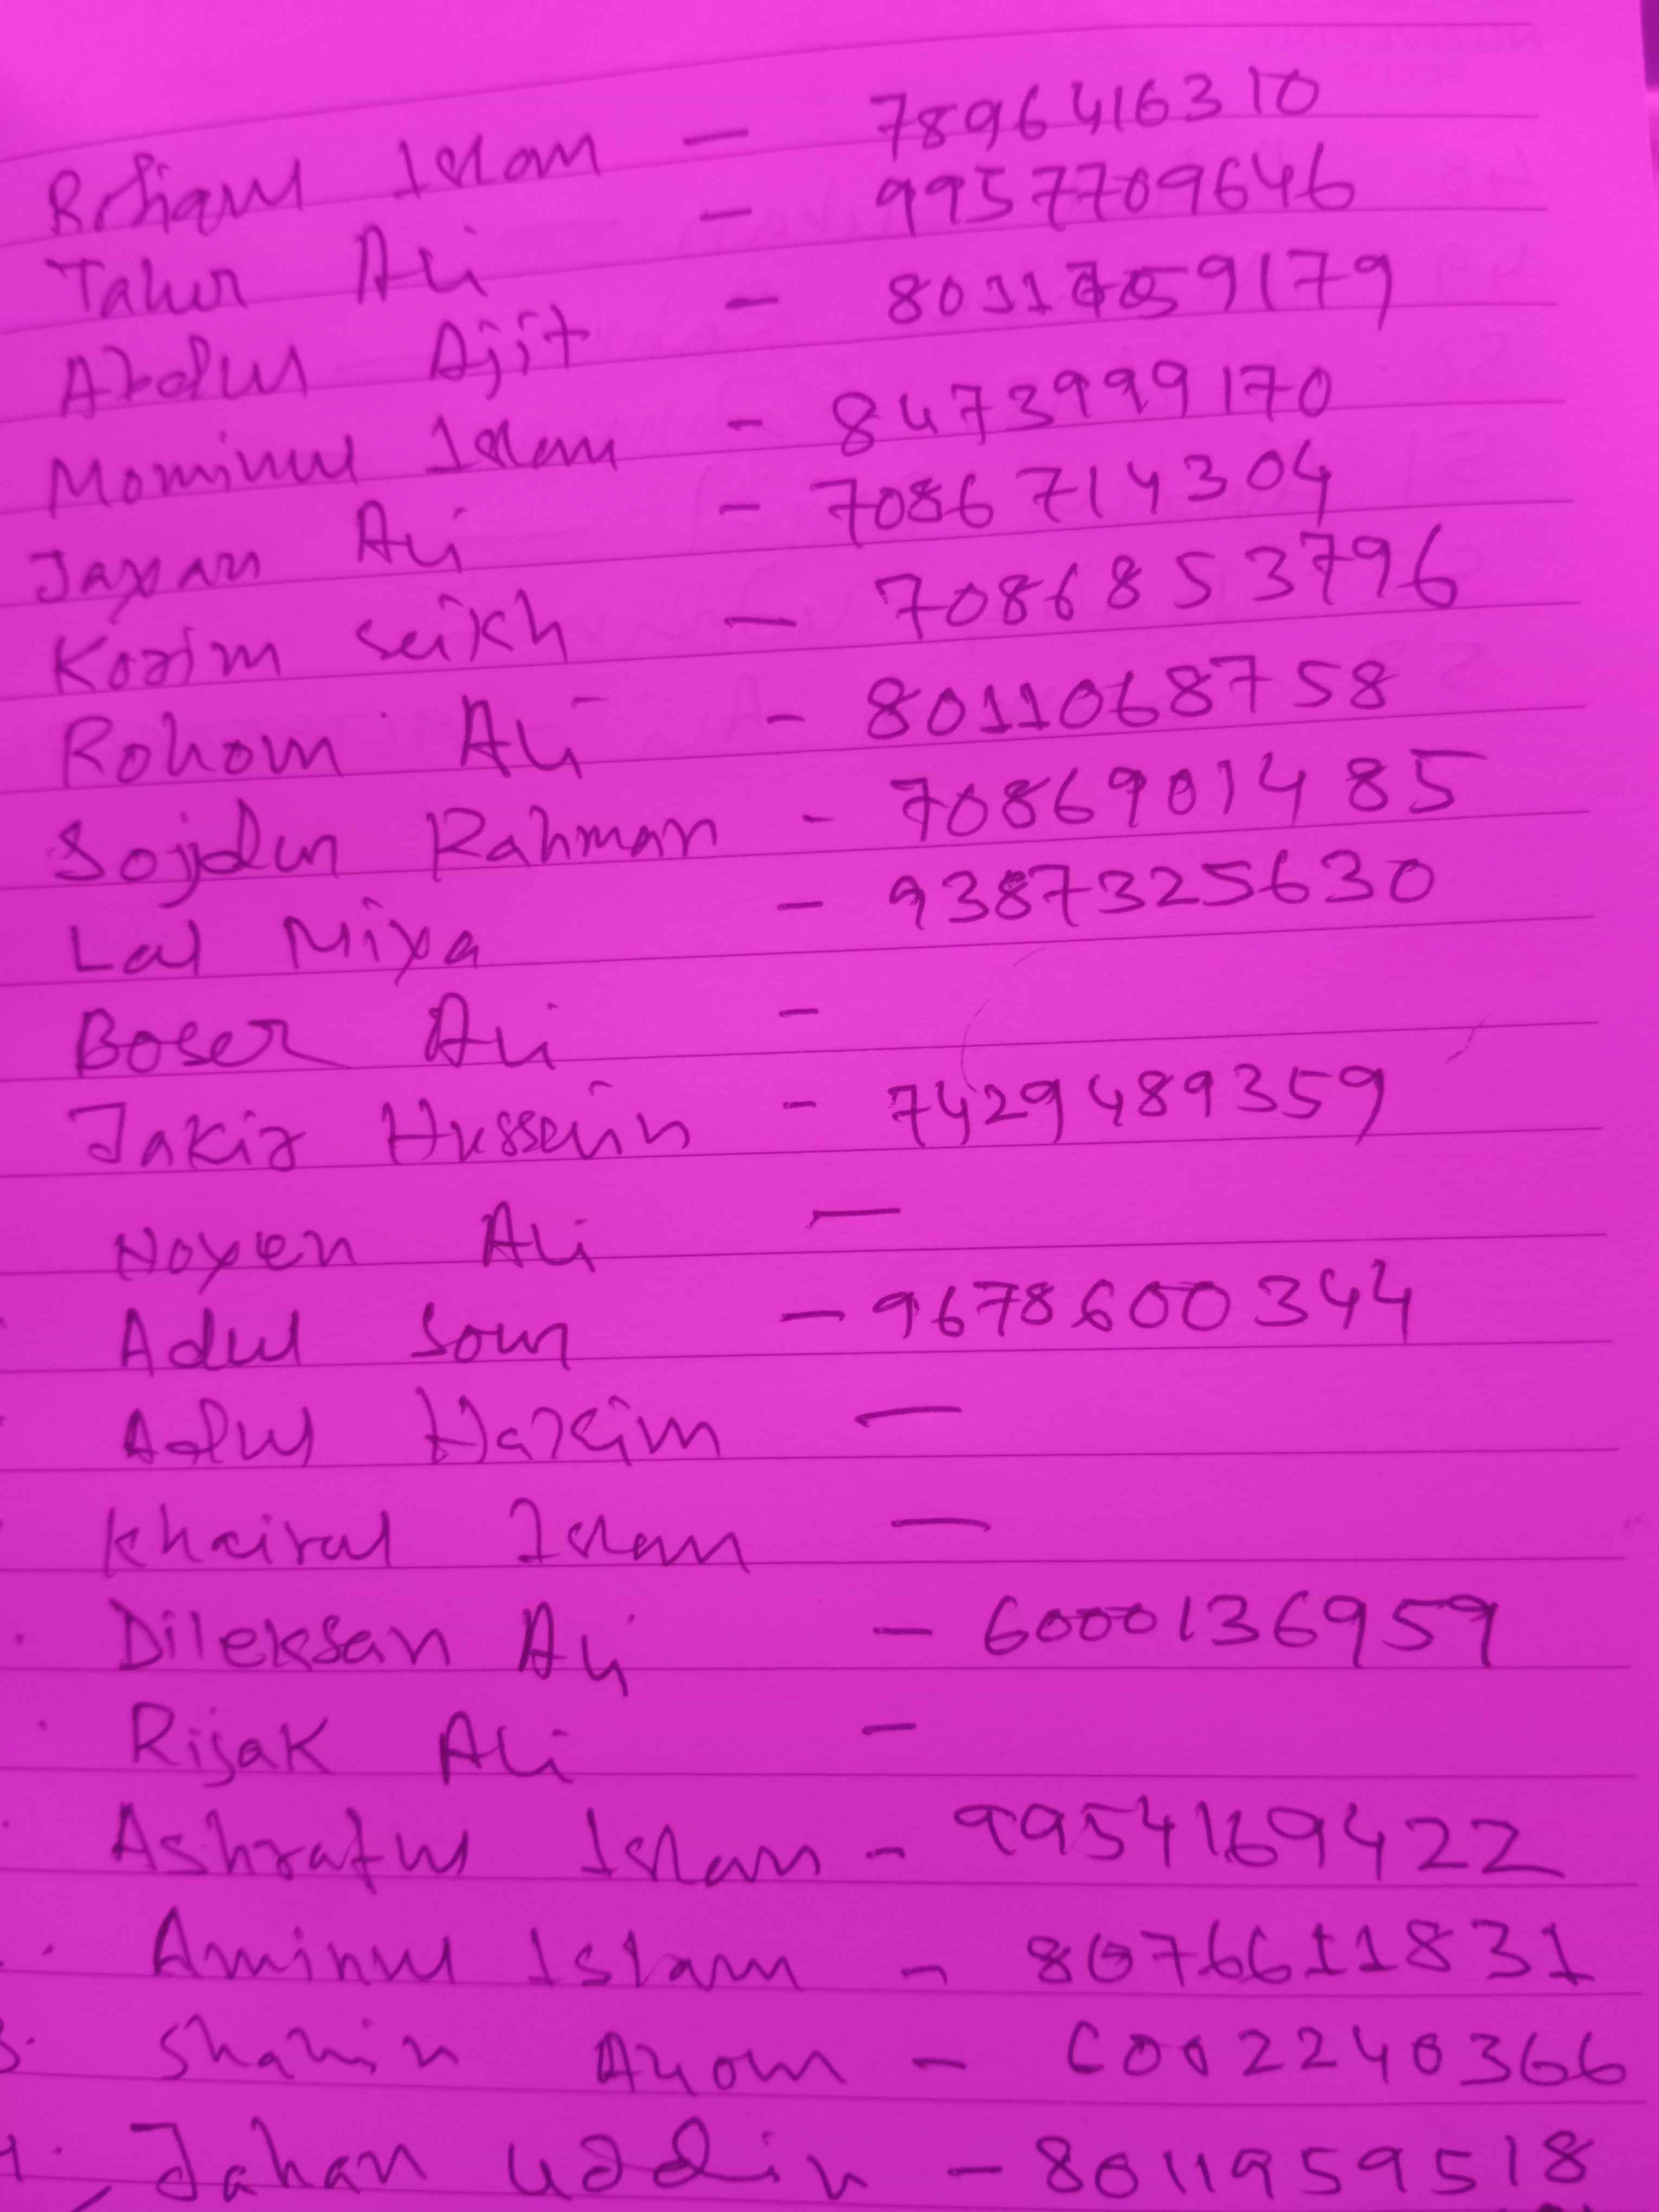 Rofiqul Islam - 7896416310
Taher Ali - 9957709646
Abdul Ajit - 8011759179
Mominul Islam - 8473999170
Jaynan Ali - 7086714304
Korim Seikh - 7086853796
Rohom Ali - 8011068758
Sojidur Rahman - 7086901485
Lal Miya - 9387325630
Boser Ali -
Jakir Hussein - 7429489359
Noyen Ali -
Adul Sour - 9678600344
Abdul Hakim -
Khairul Islam -
Dileksan Ali - 6000136959
Rijak Ali -
Ashraful Islam - 9954169422
Aminul Islam - 8076611831
Shahin Alom - 6002240366
Jahan Uddin - 8011959518